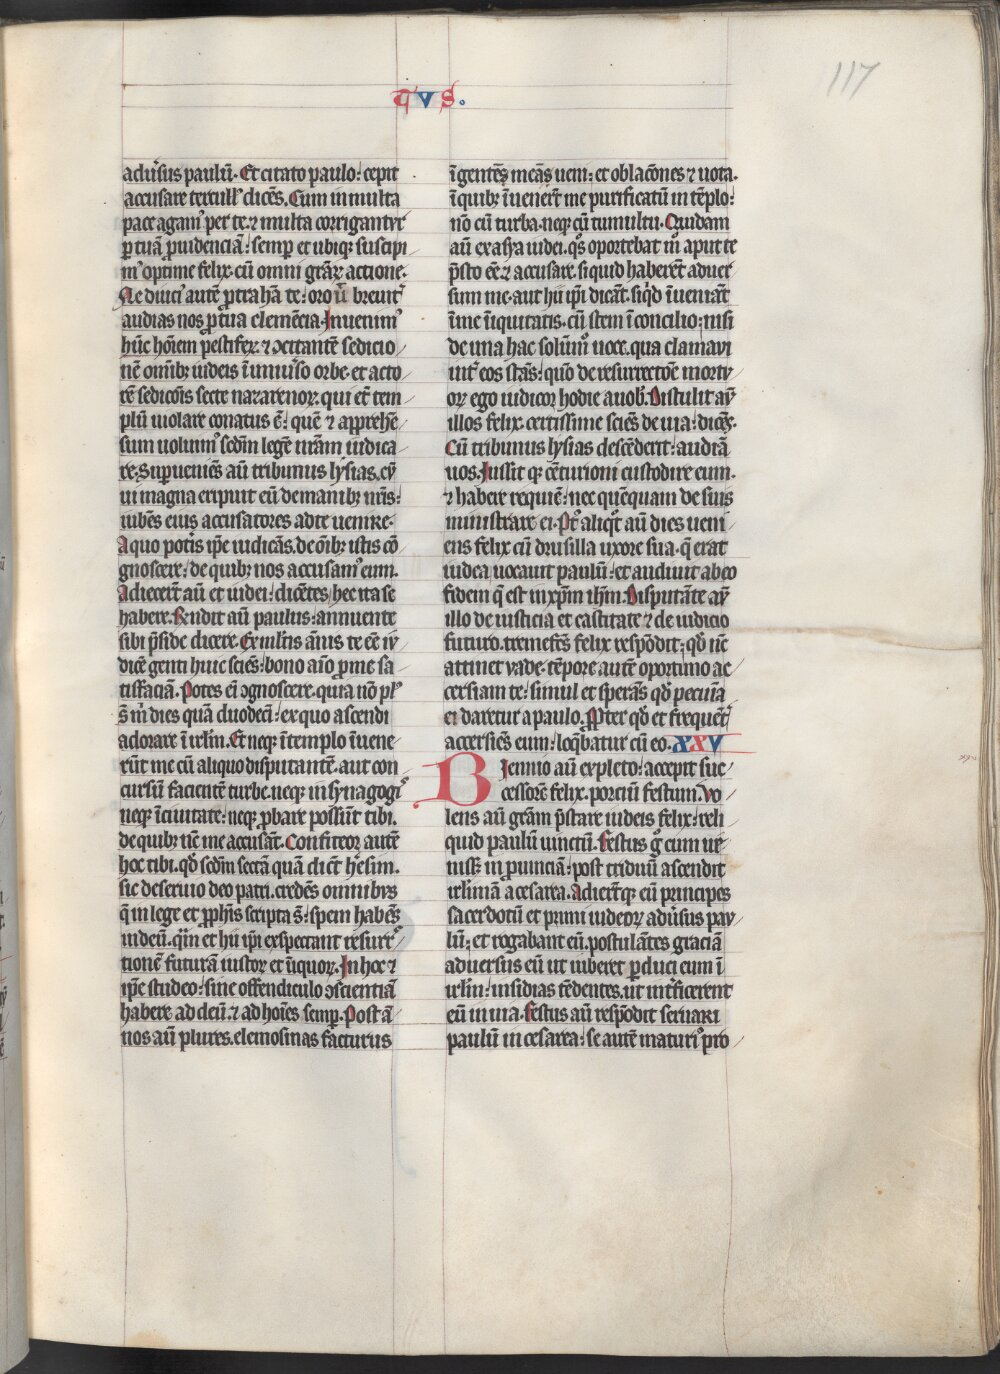 117
tꝰ v s.
adu͛sus paulū. Et citato paulo: cepit
accusare tertull᷒ dicēs. Cum in multa
pace agamꝰ per te. ⁊ multa corrigantyr
ꝑ tuā ꝓuidenciā: semꝑ et ubiqꝫ suscipi
mꝰ optime felix. cū omni grāꝝ actione.
Ne diuciꝰ autē ꝓtrahā te: oro ū breuit͛
audias nos ꝓ tua clemēcia. Inuenimꝰ
hūc hōiem pestiferꝫ ⁊ ꝯcitantē sedicio
nē omībꝫ iudeis ī uniu͛so orbe. et acto
rē sedicōis secte nazarenoꝝ. qui eciā tem
plū uiolare conatus ē: quē ⁊ apprehē
sum uoluimꝰ scdm̄ legē nr̄am iudica
re. Suꝑueniēs aū tribunus lysias. cū
ui magna eripuit eū de manibꝫ nr̄is:
iubēs eius accusatores ad te uenire.
A quo potis ip̄e iudicās. de oībꝫ istis co
gnoscere: de quibꝫ nos accusamꝰ eum.
Adiecert̄ aū et iudei: dicētes hec ita se
habere. Rn̄dit aū paulus: annuente
sibi p̄side dicere. Ex ml̄tis ānis te eē iu
dicē genti huic sciēs: bono aīo ꝓ me sa
tisfaciā. Potes eī ꝯgnoscere. quia nō plꝰ
s̄ m̄ dies quā duodecī: ex quo ascendi
adorare ī irl̄m. Et neqꝫ ī templo īuene
rūt me cū aliquo disputantē. aut con
cursū facientē turbe. neqꝫ in synagogis
neqꝫ ī ciuitate: neqꝫ ꝓbare possūt tibi.
de quibꝫ nc̄ me accusāt. Confiteor autē
hoc tibi. qd̄ scdm̄ sectā quā dicūt hĕsim.
sic deseruio deo patri. credēs omnibvs
q̄ in lege et ꝓph̄is scripta s̄: spem habēs
in deū. quā et hii ip̄i exspectant resurr
tionē futurā iustoꝝ et īiquoꝝ. In hoc ⁊
ip̄e studeo: sine offendiculo ꝯscientiā
habere ad deū. ⁊ ad hoīes semꝑ. Post ā
nos aū plures. elemosinas facturus
ī gentē meā ueni: et oblacōnes ⁊ uota.
ī quibꝫ īuenert̄ me purificatū in tēplo:
nō cū turba. neqꝫ cū tumultu. Quidam
aū ex asya iudei. qs̄ oportebat m̄ aput te
p̄sto eē ⁊ accusare. si quid haberēt aduer
sum me. aut hii ip̄i dicāt. si qd̄ īueniāt̄
ī me īiquitatis. cū stem ī concilio: nisi
de una hac solūmꝰ uoce. qua clamavi
int͛ eos stās: qm̄ de resurrectoē mortv
oꝝ ego iudicor hodie a uob̄. Distulit av̄
illos felix. certissime sciēs de uia: dicēs.
Cū tribunus lysias descēderit: audiā
uos. Iussit qꝫ cēturioni custodire eum.
⁊ habere requiē: nec quēquam de suis
ministrare ei. Ptꝰ aliqt̄ aū dies ueni
ens felix cū drusilla uxore sua. q̄ erat
iudea uocauit paulū: et audiuit ab eo
fidem q̄ est in xp̄m ih̄m. Disputāte av̄
illo de iusticia et castitate ⁊ de iudicio
futuro. tremefēs felix respōdit; qd̄ nc̄
attinet vade. tēpore autē oportuno ac
cersiam te: simul et sperās qd̄ pecuīa
ei daretur a paulo. Ꝓpter qd̄ et frequēt͛
accersiēs eum: loq̄batur cū eo. XXV
Biennio aū expleto: accepit suc
cessorē felix. porciū festum. Vo
lens aū grām p̄stare iudeis felix: reli
quid paulū uinctū. Festus g̊ cum ue
nisꝫ in ꝓuinciā: post triduū ascendit
irl̄imā a cesarea. Adiert̄qꝫ eū principes
sacerdotū et primi iudeoꝝ adu͛sus pav
lū; et rogabant eū. postulātes graciā
aduersus eū ut iuberet ꝑduci eum ī
irl̄m: insidias tēdentes. ut int͛ficerent
eū in uia. Festus aū respōdit seruari
paulū in cesarea: se autē maturiꝰ pro